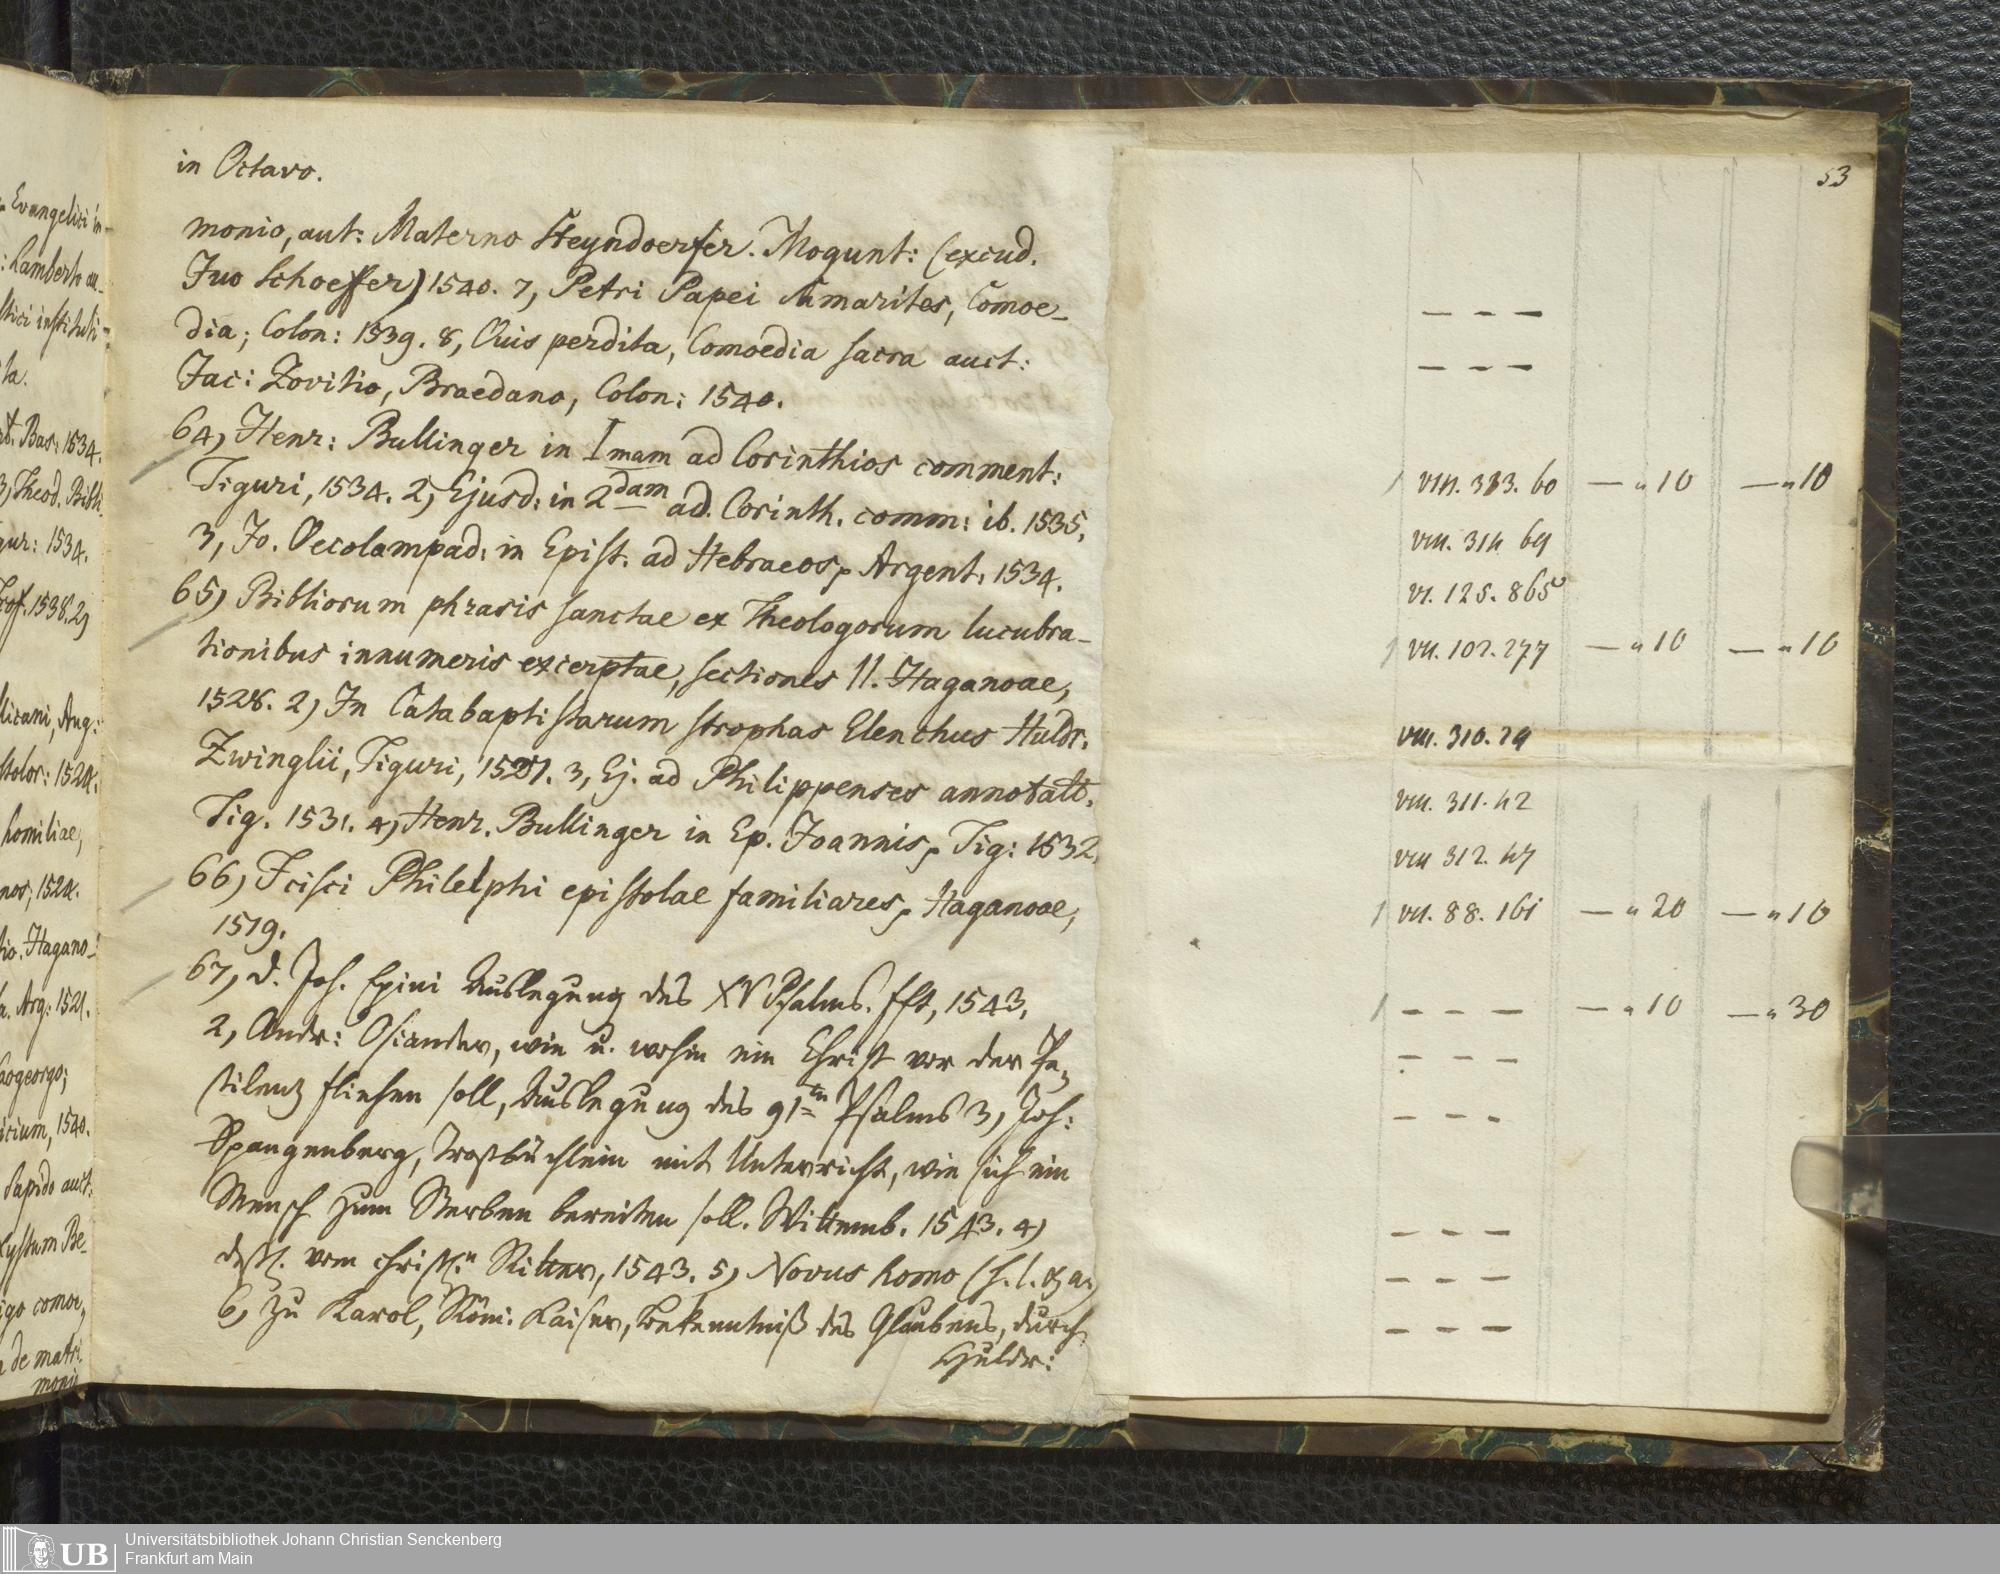 in Octavo.
monio, aut: Materno Steyndoerfer. Mogunt: (excud.
Ivo Schoeffer) 1540. 7, Petri Papei Samarites, Comoe-
dia; Colon: 1539. 8, Ovis perdita, Comoedia sacra auct:
Jac: Zovitio, Braedano, Colon: 1540.
64, Henr: Bullinger in Imam ad Corinthios comment:
Tiguri, 1534. 2, Ejusd: in 2dam ad Corinth. comm: ib. 1535.
3, Jo. Oecolampad: in Epist. ad Hebraeos, Argent. 1534.
65, Bibliorum phrasis sanctae ex Theologorum lucubra-
tionibus innumeris excerptae, sectiones II. Haganoae,
1528. 2, In Catabaptistarum strophas Elenchus Huldr.
Zwinglii, Tiguri, 1527. 3, Ej. ad Philippenses annotatt.
Tig. 1531. 4, Henr. Bullinger in Ep. Joannis, Tig: 1532.
66, Fcisci Philelphi epistolae familiares, Haganoae,
1519.
67, D. Joh. Epini Auslegung des XV Psalms. fft, 1543.
2, Andr: Osiander, wie u. wohin ein Christ vor der Pe-
stilenz fliehen soll, Auslegung des 91ten Psalms 3, Joh:
Spangenberg, Trostbüchlein mit Unterricht, wie sich ein
Mensch zum Sterben bereiten soll. Wittemb. 1543. 4,
vom christl.n Ritter, 1543. 5, Novus homo (s. l. & a.)
6, zu Karol, Röm: Kaiser, Bekenntniß des Glaubens, durch
Huldr:
53
– – –
– – –
VIII. 383. 60 — " 10 — " 10
VIII. 314 69
VI. 125. 865
VII. 102. 277 — " 10 — " 10
VIII. 310. 29
VIII. 311. 42
VIII 312. 47
VII. 88. 161 — " 20 — " 10
– – – — " 10 — " 30
– – –
– – –
– – –
– – –
– – –
Evangelici in
: Lamberto au-
stici instituti-
ta.
Bas: 1534.
3, Theod. Bibli
gur: 1534.
1538. 2,
licani, Aug:
stolor: 1524.
homiliae,
nos, 1524.
tio. Hagano-
a. Arg: 1521.
aogeorgo;
icium, 1540.
Sapido auct:
Lystum Be-
igo comoe,
de matri-
monio
UB
Universitätsbibliothek Johann Christian Senckenberg
Frankfurt am Main